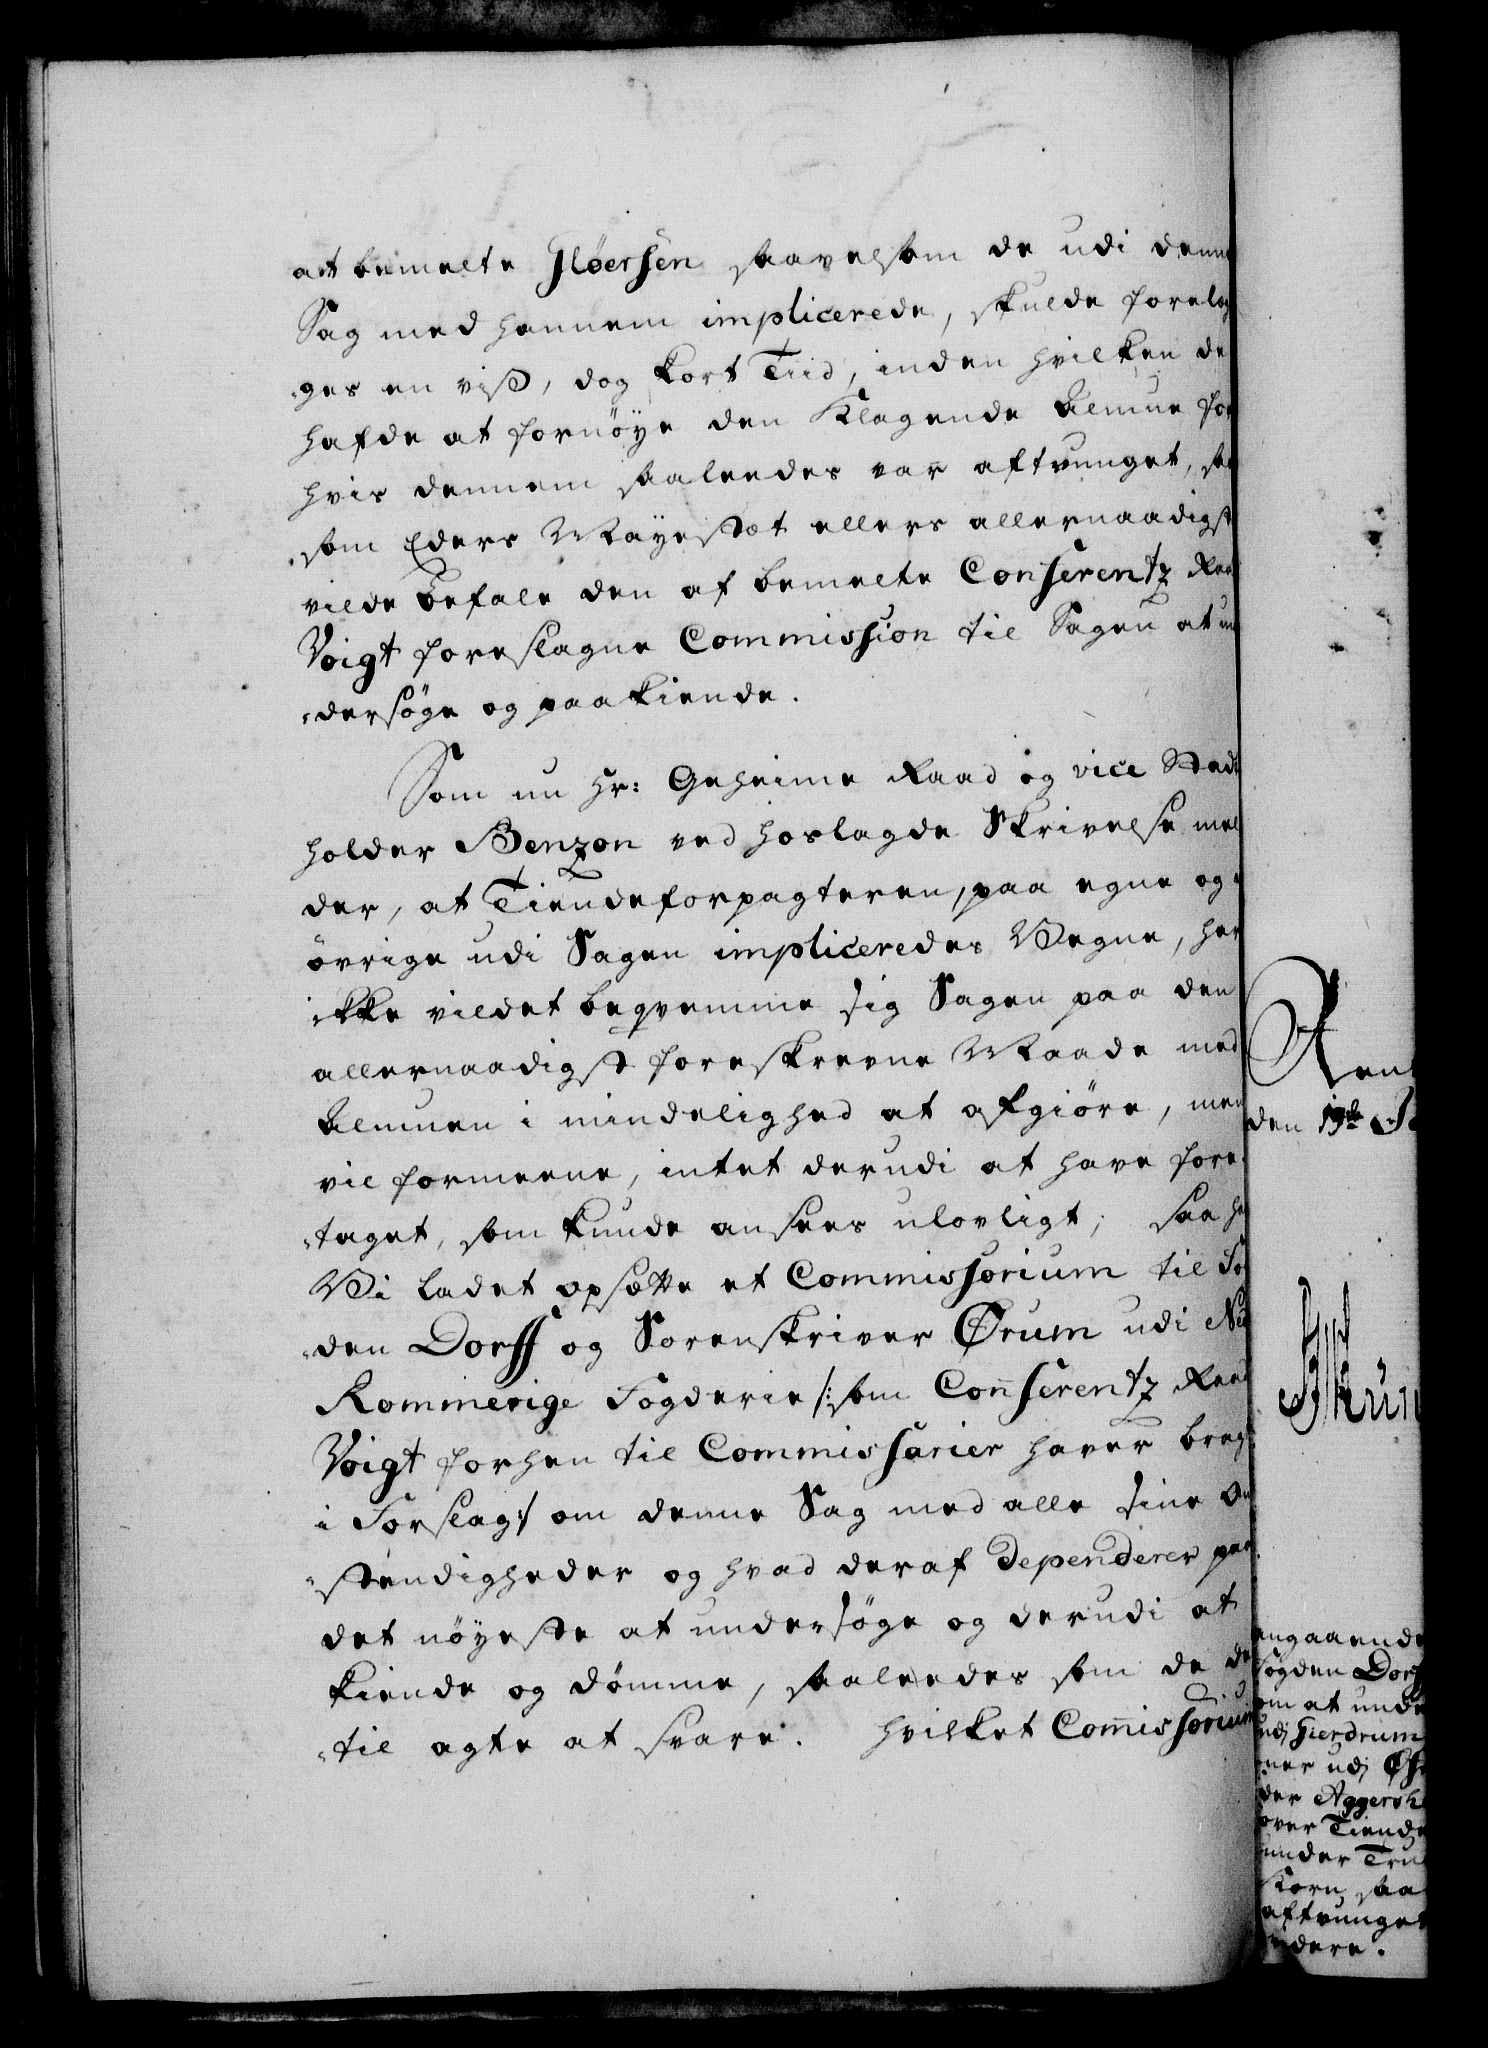 at bemelte Fløersen saavelsom de udi denne
Sag med hannem implicerede, skulde forelæg
-ges en viß, dog kort Tiid, inden hvilken de
hafde at fornöye den Klagende Almue for
hvis dennem saaledes var aftvunget, saa
-som Eders Mayestæt ellers allernaadigst
vilde befale den af bemelte Conferentz Raad
Voigt foreslagne Commission til Sagen at un
-dersöge og paakiende.
Som nu Hr: Geheime Raad og vice Stadt
holder Benzon ved hoslagde Skrivelse mel
der, at Tiendeforpagteren, paa egne og
övrige udi Sagen impliceredes Vegne, har
ikke vildet beqvemme sig Sagen paa den
allernaadigst foreskrevne Maade med
Almuen i mindelighed at afgiöre, men
vil formeene, intet derudi at have fore-
-taget, som kunde ansees ulovligt; saa ha
Vi ladet opsætte et Commissorium til Fo
-den Dorff og Sorenskriver Ørum udi Ned
Rommerige Fogderie /: som Conferentz Raad
Voigt forhen til Commissarier haver bragt
i Forslag :/ om denne Sag med alle sine Om
-stendigheder og hvad deraf dependerer paa
det nöyeste at undersöge og derudi at
kiende og dömme, saaledes som de der
-til agte at svare. Hvilket Commissorium
Rent
den 19de
angaaende
Fogden Dorff
om at unde
udj Gierdrum
ner udj
der Aggersh
over Tiende
under Tru
Korn, saa
aftvunget
videre.